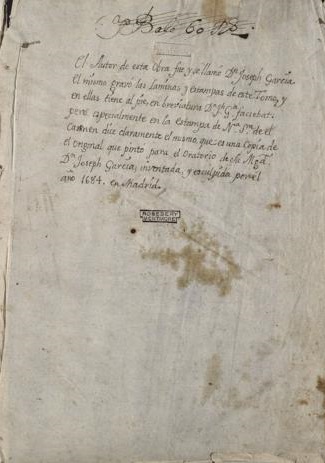 El Autor de esta Obra fue, y se llamó Dn. Joseph Garcia
El mismo gravó las Laminas y estampas de este Tomo, y
en ellas tiene al pie en breviatura Dn. Jph. Ga. faciebat.
pero especialmente en la estampa de Nra. Sra. de el
Carmen dice claramente el mismo que es una Copia de
el original que pinto para el Oratorio de su Magd.
Dn. Joseph Garcia, inventada, y esculpida por el
año 1684. en Madrid.